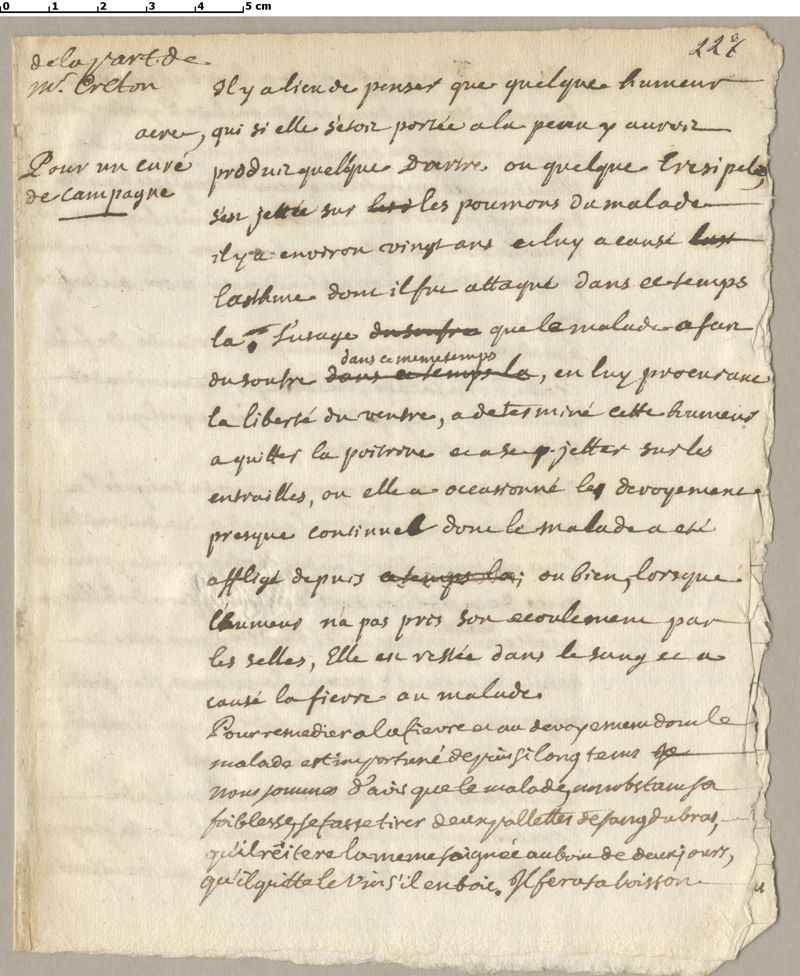 0 1 2 3 4 5 cm
227
de la part de
Mr. Creton
Pour un curé
de campagne
Il y a lieu de penser que quelque humeur
acre, qui si elle s'etoit portée a la peau y auroit
produit quelque Dartre ou quelque Eresipele,
s'est jettée sur les les poumons du malade
il y a environ vingt ans et luy a causé
lasthme dont il fut attaqué dans ce temps
la. L'usage du soufre que le malade a fait
dans ce meme temps
du soufre dans ce temps la, en luy procurant
la liberté du ventre, a determiné cette humeur
a quitter la poitrine et a se jetter sur les
entrailles, ou elle a occasionné le devoyement
presque continuel dont le malade a eté
affligé depuis ce temps la; ou bien, lorsque
l'humeur n'a pas pris son ecoulement par
les selles, Elle est restée dans le sang et a
causé la fievre au malade.
Pour remedier a la fievre et au devoyement dont le
malade est importuné depuis si long tems
nous sommes d'avis que le malade, nonobstant sa
foiblesse, se fasse tirer deux pallettes de sang du bras,
qu'il réitere la meme saignée au bout de deux jours,
qu'il quitte le Vin s'il en boit. Il fera sa boisson